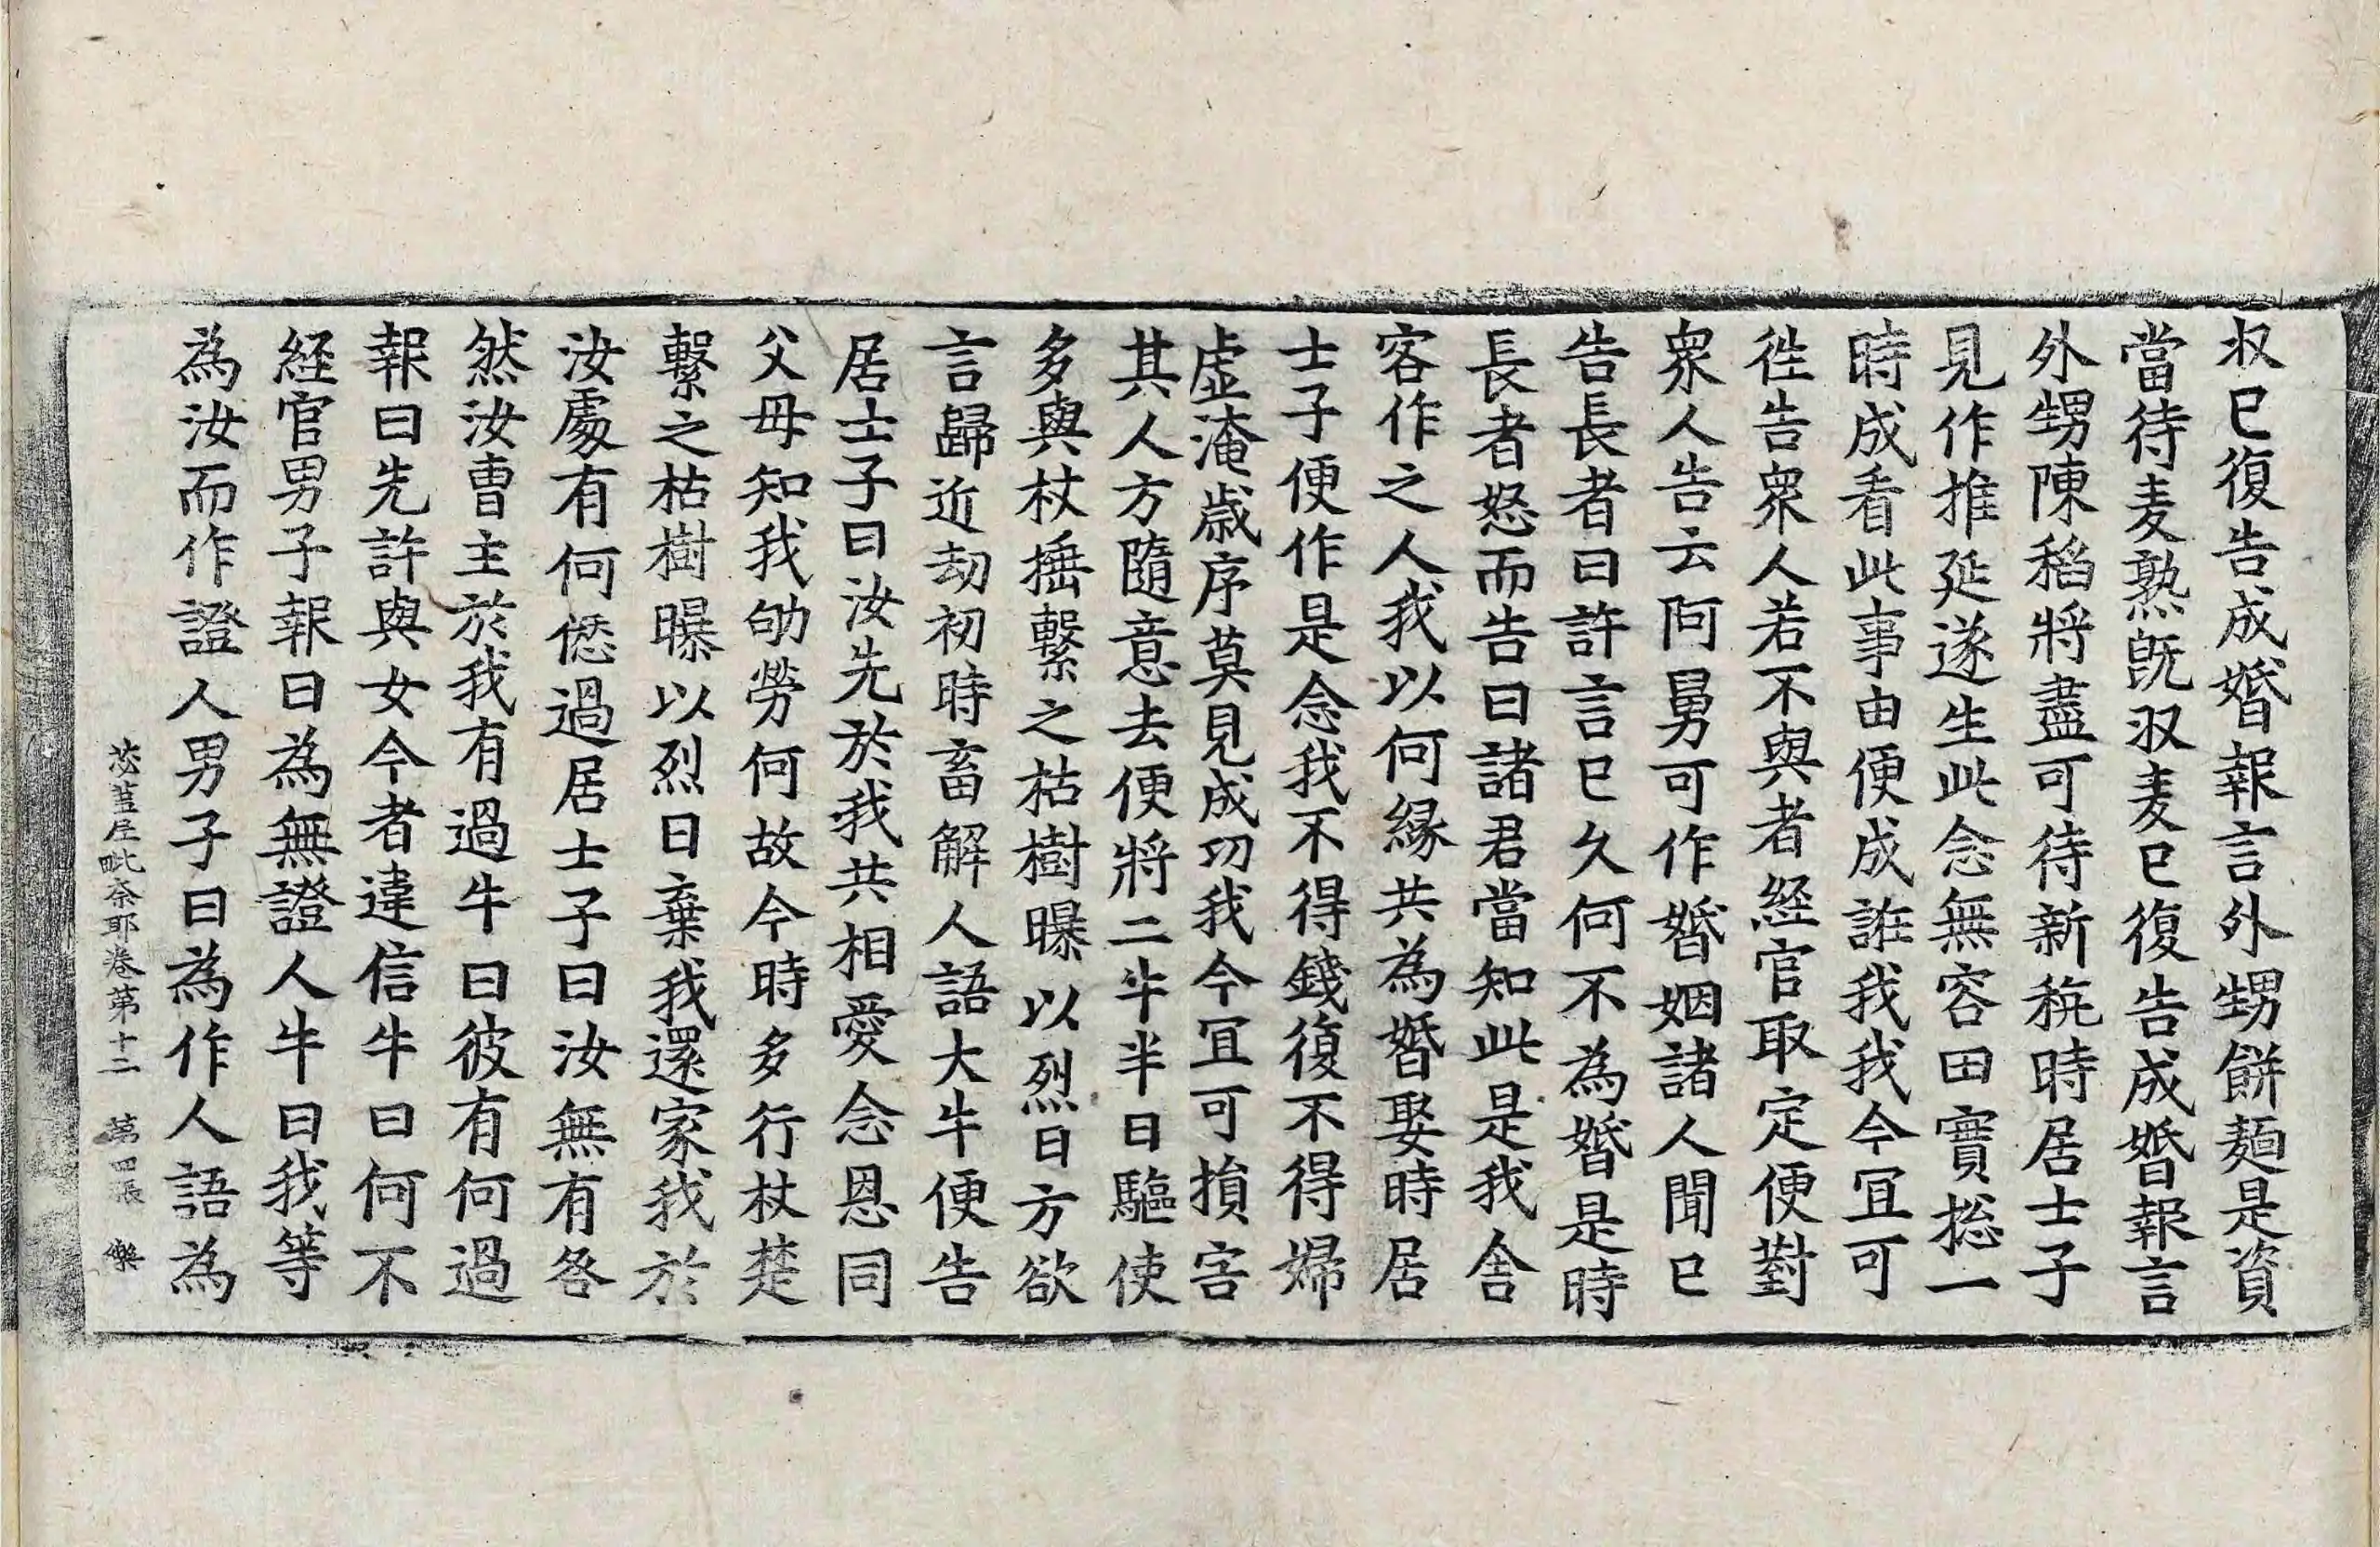 収已復告成婚報言外甥餅麺是資
當待麦熟旣収麦已復告成婚報言
外甥陳稻將盡可待新秔時居士子
見作推延遂生此念無容田實揔一
時成看此事由便成誑我我今冝可
徃告衆人若不與者経官取定便對
衆人告云阿舅可作婚姻諸人聞已
告長者曰許言已久何不為婚是時
長者怒而告曰諸君當知此是我舍
客作之人我以何縁共為婚娶時居
士子便作是念我不得錢復不得婦
虚淹歲序莫見成功我今冝可損害
其人方隨意去便將二牛半日驅使
多與杖捶繫之枯樹曝以烈日方欲
言歸近劫初時畜解人語大牛便告
居士子曰汝先於我共相愛念恩同
父母知我劬勞何故今時多行杖楚
繫之枯樹曝以烈日棄我還家我於
汝處有何僽過居士子曰汝無有咎
然汝曹主於我有過牛曰彼有何過
報曰先許與女今者違信牛曰何不
経官男子報曰為無證人牛曰我等
為汝而作證人男子曰為作人語為
苾蒭尼毗柰耶卷第十二 第四張 樂